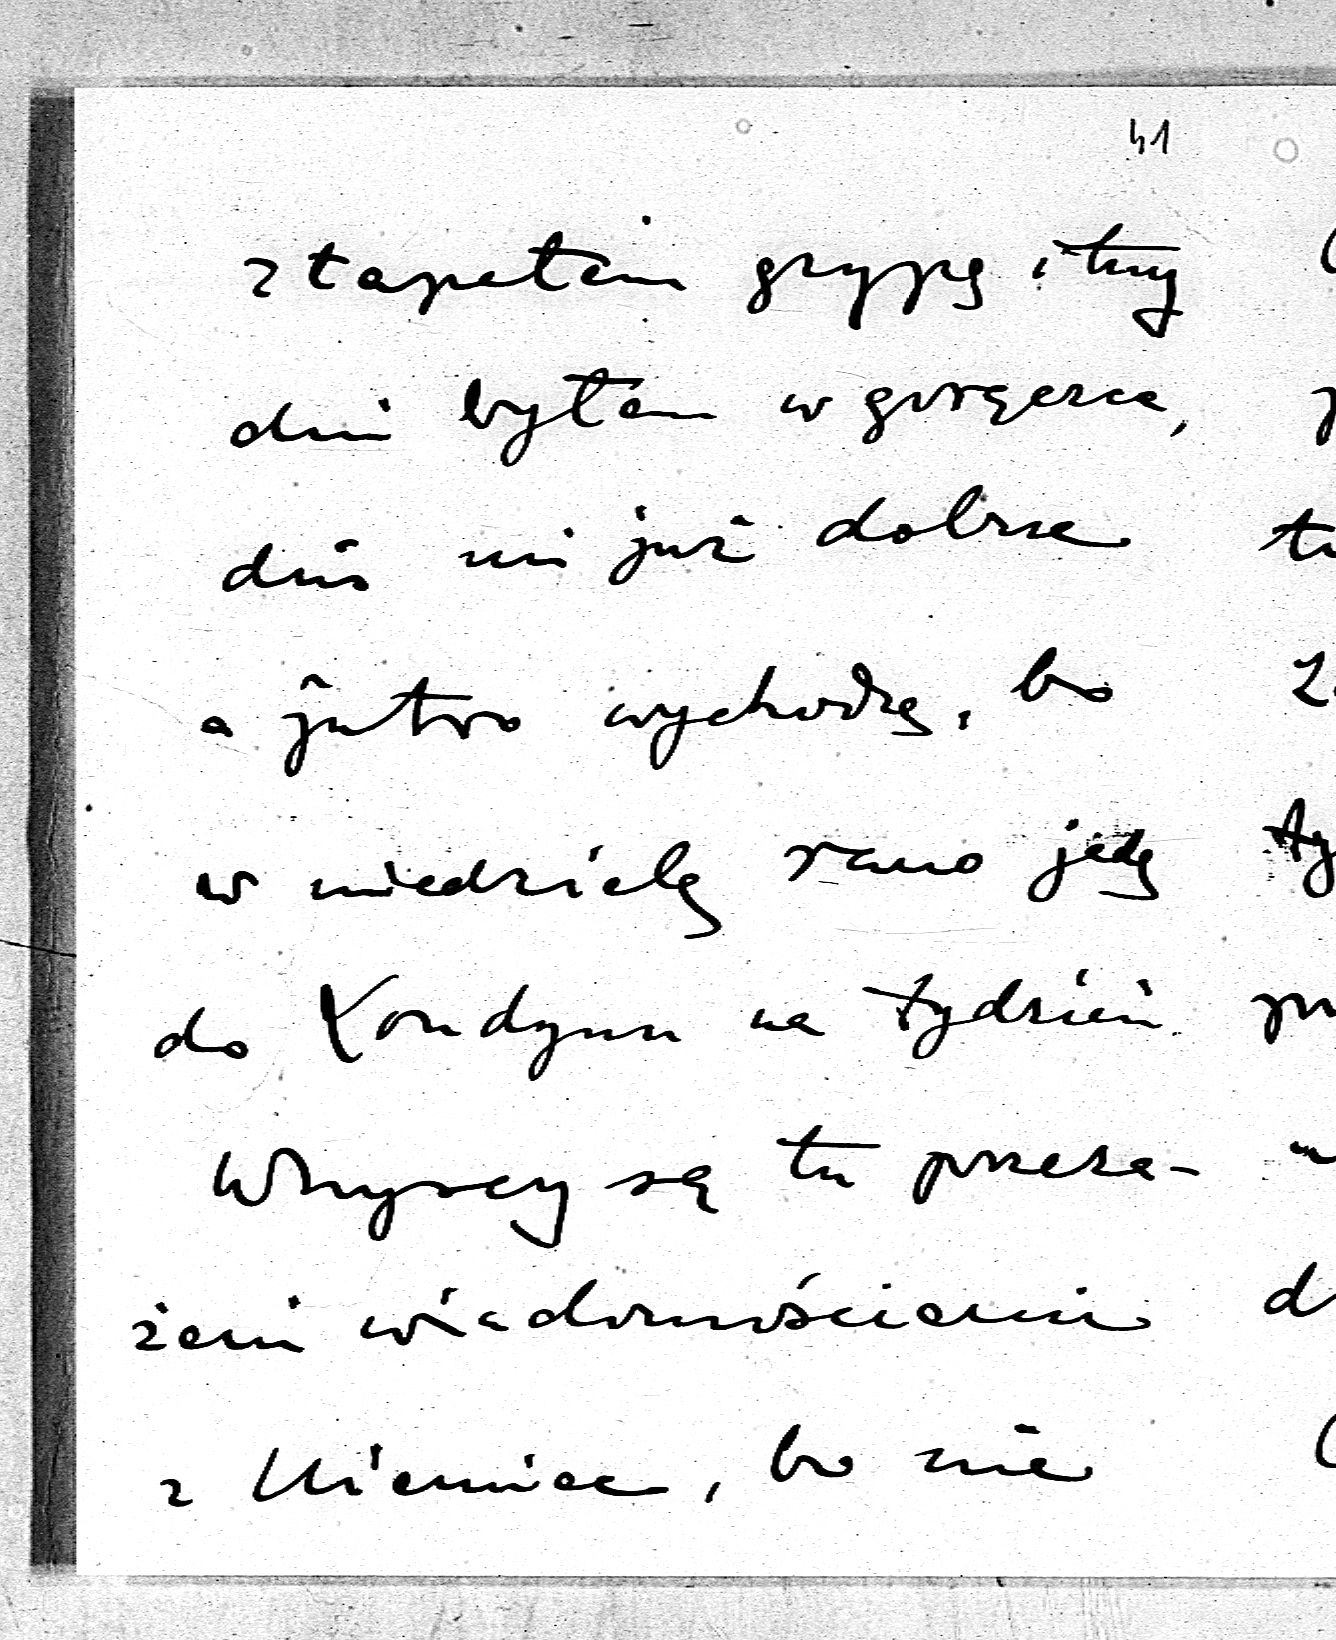 41
złapałem grypę i trzy
dni byłem w gorączce,
dziś mi już dobrze
a jutro wychodzę, bo
w niedzielę rano jadę
do Londynu na tydzień
Wszyscy są tu przera-
żeni wiadomościami
z Niemiec, bo nie